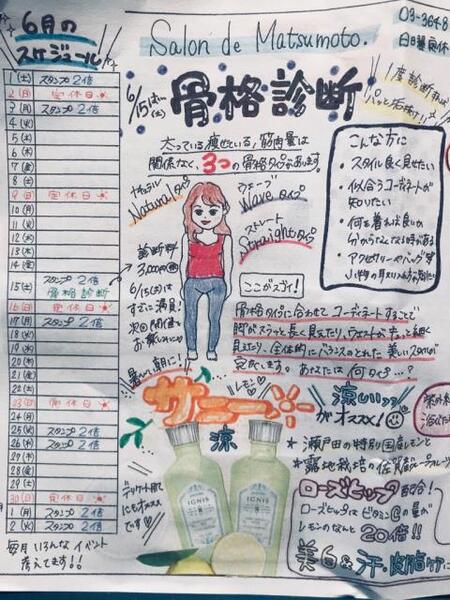 6月の
スケジュール
1 (土) スタンプ2倍
2 (日) 定休日
3 (月) スタンプ2倍
4 (火)
5 (水)
6 (木)
7 (金)
8 (土)
9 (日) 定休日
10 (月)
11 (火)
12 (水)
13 (木)
14 (金)
15 (土) スタンプ2倍
骨格診断
16 (日) 定休日
17 (月) スタンプ2倍
18 (火)
19 (水)
20 (木)
21 (金)
22 (土)
23 (日) 定休日
24 (月)
25 (火) スタンプ2倍
26 (水) スタンプ2倍
27 (木)
28 (金)
29 (土)
30 (日) 定休日
1 (月) スタンプ2倍
2 (火) スタンプ2倍
毎月いろんなイベント
考えてます!!
Salon de Matsumoto.
03-3648
日曜定休
6/15(土)
骨格診断
1度診断すれば
パッと垢抜け!
太っている痩せている、筋肉量は
関係なく、3つの骨格タイプがあります。
ナチュラル
Naturalタイプ
ウェーブ
Waveタイプ
ストレート
Straightタイプ
診断料
3,000円
6/15(土)は
すでに満員!
次回開催を
お楽しみに
こんな方に
・スタイル良く見せたい
・似合うコーディネートが
知りたい
・何を着れば良いか
分からなくなる時がある
・アクセサリーやバッグ等
ここがスゴイ!
骨格タイプに合わせてコーディネートすることで
脚がスラッと長く見えたり、ウエストがキュッと細く
見えたり、全体的にバランスのとれた美しいスタイルが
完成します。あなたは何タイプ…?
暑い朝に!
サニー
レモン
涼
涼しいッッ
がオススメ!
★瀬戸田の特別国産レモンと
★露地栽培の佐賀産グレープフルーツ
IGNIS
IGNIS
デリケート用
にもオススメ
です
ローズヒップ配合!
ローズヒップはビタミンCの量が
レモンのなんと20倍!!
美白&汗、皮脂ケアに